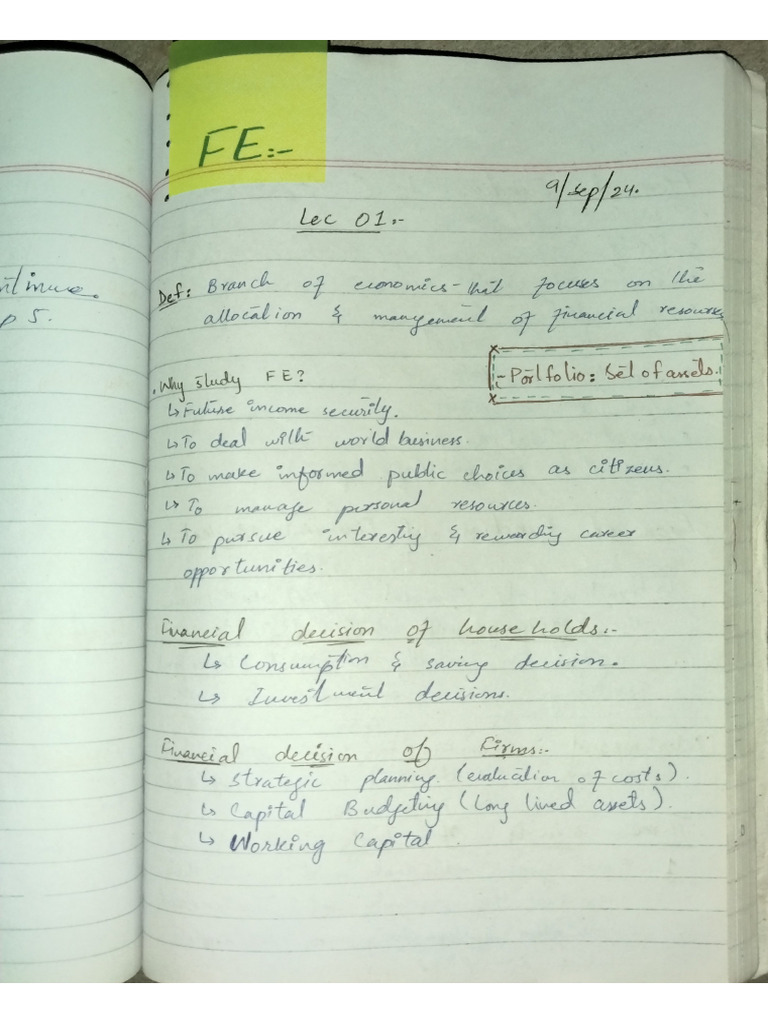 FE:-
9/sep/24.
Lec 01:-
ntinue.
p 5.
Def: Branch of economics that focuses on the
allocation & management of financial resources
- Portfolio: Set of assets.
Why study FE?
↳ Future income security.
↳ To deal with world business.
↳ To make informed public choices as citizens.
↳ To manage personal resources.
↳ To pursue interesting & rewarding career
opportunities.
Financial decision of households:-
↳ Consumption & saving decision.
↳ Investment decisions.
Financial decision of Firms:-
↳ Strategic planning (evaluation of costs).
↳ Capital Budgeting (Long lived assets).
↳ Working Capital.